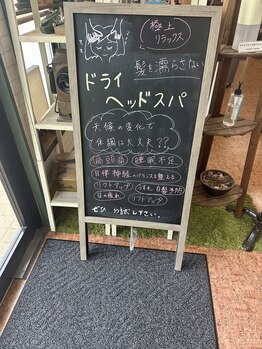 極上
リラックス
髪を濡らさない
ドライ
ヘッドスパ
天候の変化で
体調は大丈夫??
偏頭痛 睡眠不足
自律神経のバランスを整える
リフトアップ 薄毛 白髪予防
目の疲れ リフトアップ
ぜひ お試し下さい。